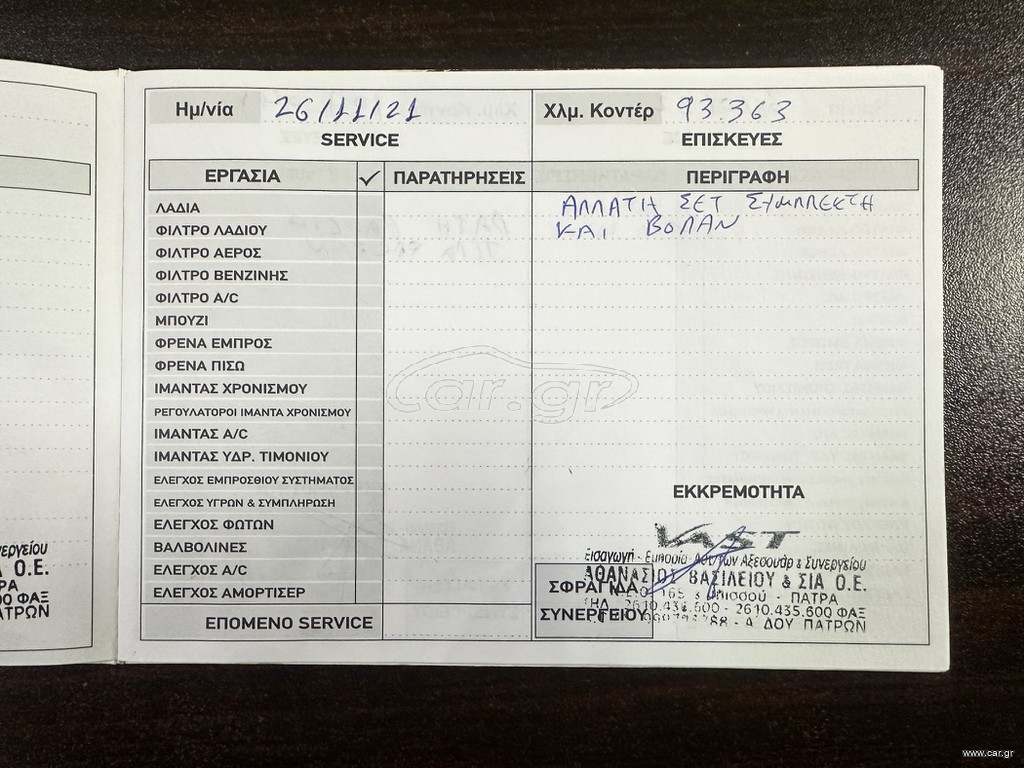 Ημ/νία 26/11/21
Χλμ. Κοντέρ 93.363
SERVICE
ΕΠΙΣΚΕΥΕΣ
ΕΡΓΑΣΙΑ ✓ ΠΑΡΑΤΗΡΗΣΕΙΣ ΠΕΡΙΓΡΑΦΗ
ΑΛΛΑΓΗ ΣΕΤ ΣΥΜΠΛΕΚΤΗ
ΚΑΙ ΒΟΛΑΝ
ΛΑΔΙΑ
ΦΙΛΤΡΟ ΛΑΔΙΟΥ
ΦΙΛΤΡΟ ΑΕΡΟΣ
ΦΙΛΤΡΟ ΒΕΝΖΙΝΗΣ
ΦΙΛΤΡΟ A/C
ΜΠΟΥΖΙ
ΦΡΕΝΑ ΕΜΠΡΟΣ
ΦΡΕΝΑ ΠΙΣΩ
ΙΜΑΝΤΑΣ ΧΡΟΝΙΣΜΟΥ
ΡΕΓΟΥΛΑΤΟΡΟΙ ΙΜΑΝΤΑ ΧΡΟΝΙΣΜΟΥ
ΙΜΑΝΤΑΣ A/C
ΙΜΑΝΤΑΣ ΥΔΡ. ΤΙΜΟΝΙΟΥ
ΕΛΕΓΧΟΣ ΕΜΠΡΟΣΘΙΟΥ ΣΥΣΤΗΜΑΤΟΣ
ΕΛΕΓΧΟΣ ΥΓΡΩΝ & ΣΥΜΠΛΗΡΩΣΗ
ΕΛΕΓΧΟΣ ΦΩΤΩΝ
ΒΑΛΒΟΛΙΝΕΣ
ΕΛΕΓΧΟΣ A/C
ΕΛΕΓΧΟΣ ΑΜΟΡΤΙΣΕΡ
ΕΠΟΜΕΝΟ SERVICE
ΕΚΚΡΕΜΟΤΗΤΑ
VAST
Εισαγωγή - Εμπορία Αυτ/των Αξεσουάρ & Συνεργείου
ΑΘΑΝΑΣΙΟΣ ΒΑΣΙΛΕΙΟΥ & ΣΙΑ Ο.Ε.
165 - ΠΑΤΡΑ
ΤΗΛ. 2610.435.600 ΦΑΞ
Α' ΔΟΥ ΠΑΤΡΩΝ
ΣΦΡΑΓΙΔΑ
ΣΥΝΕΡΓΕΙΟΥ
Ο.Ε.
ΦΑΞ
car.gr
www.car.gr